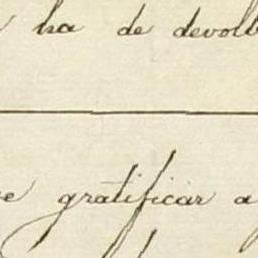 ha de devolb
gratificar a